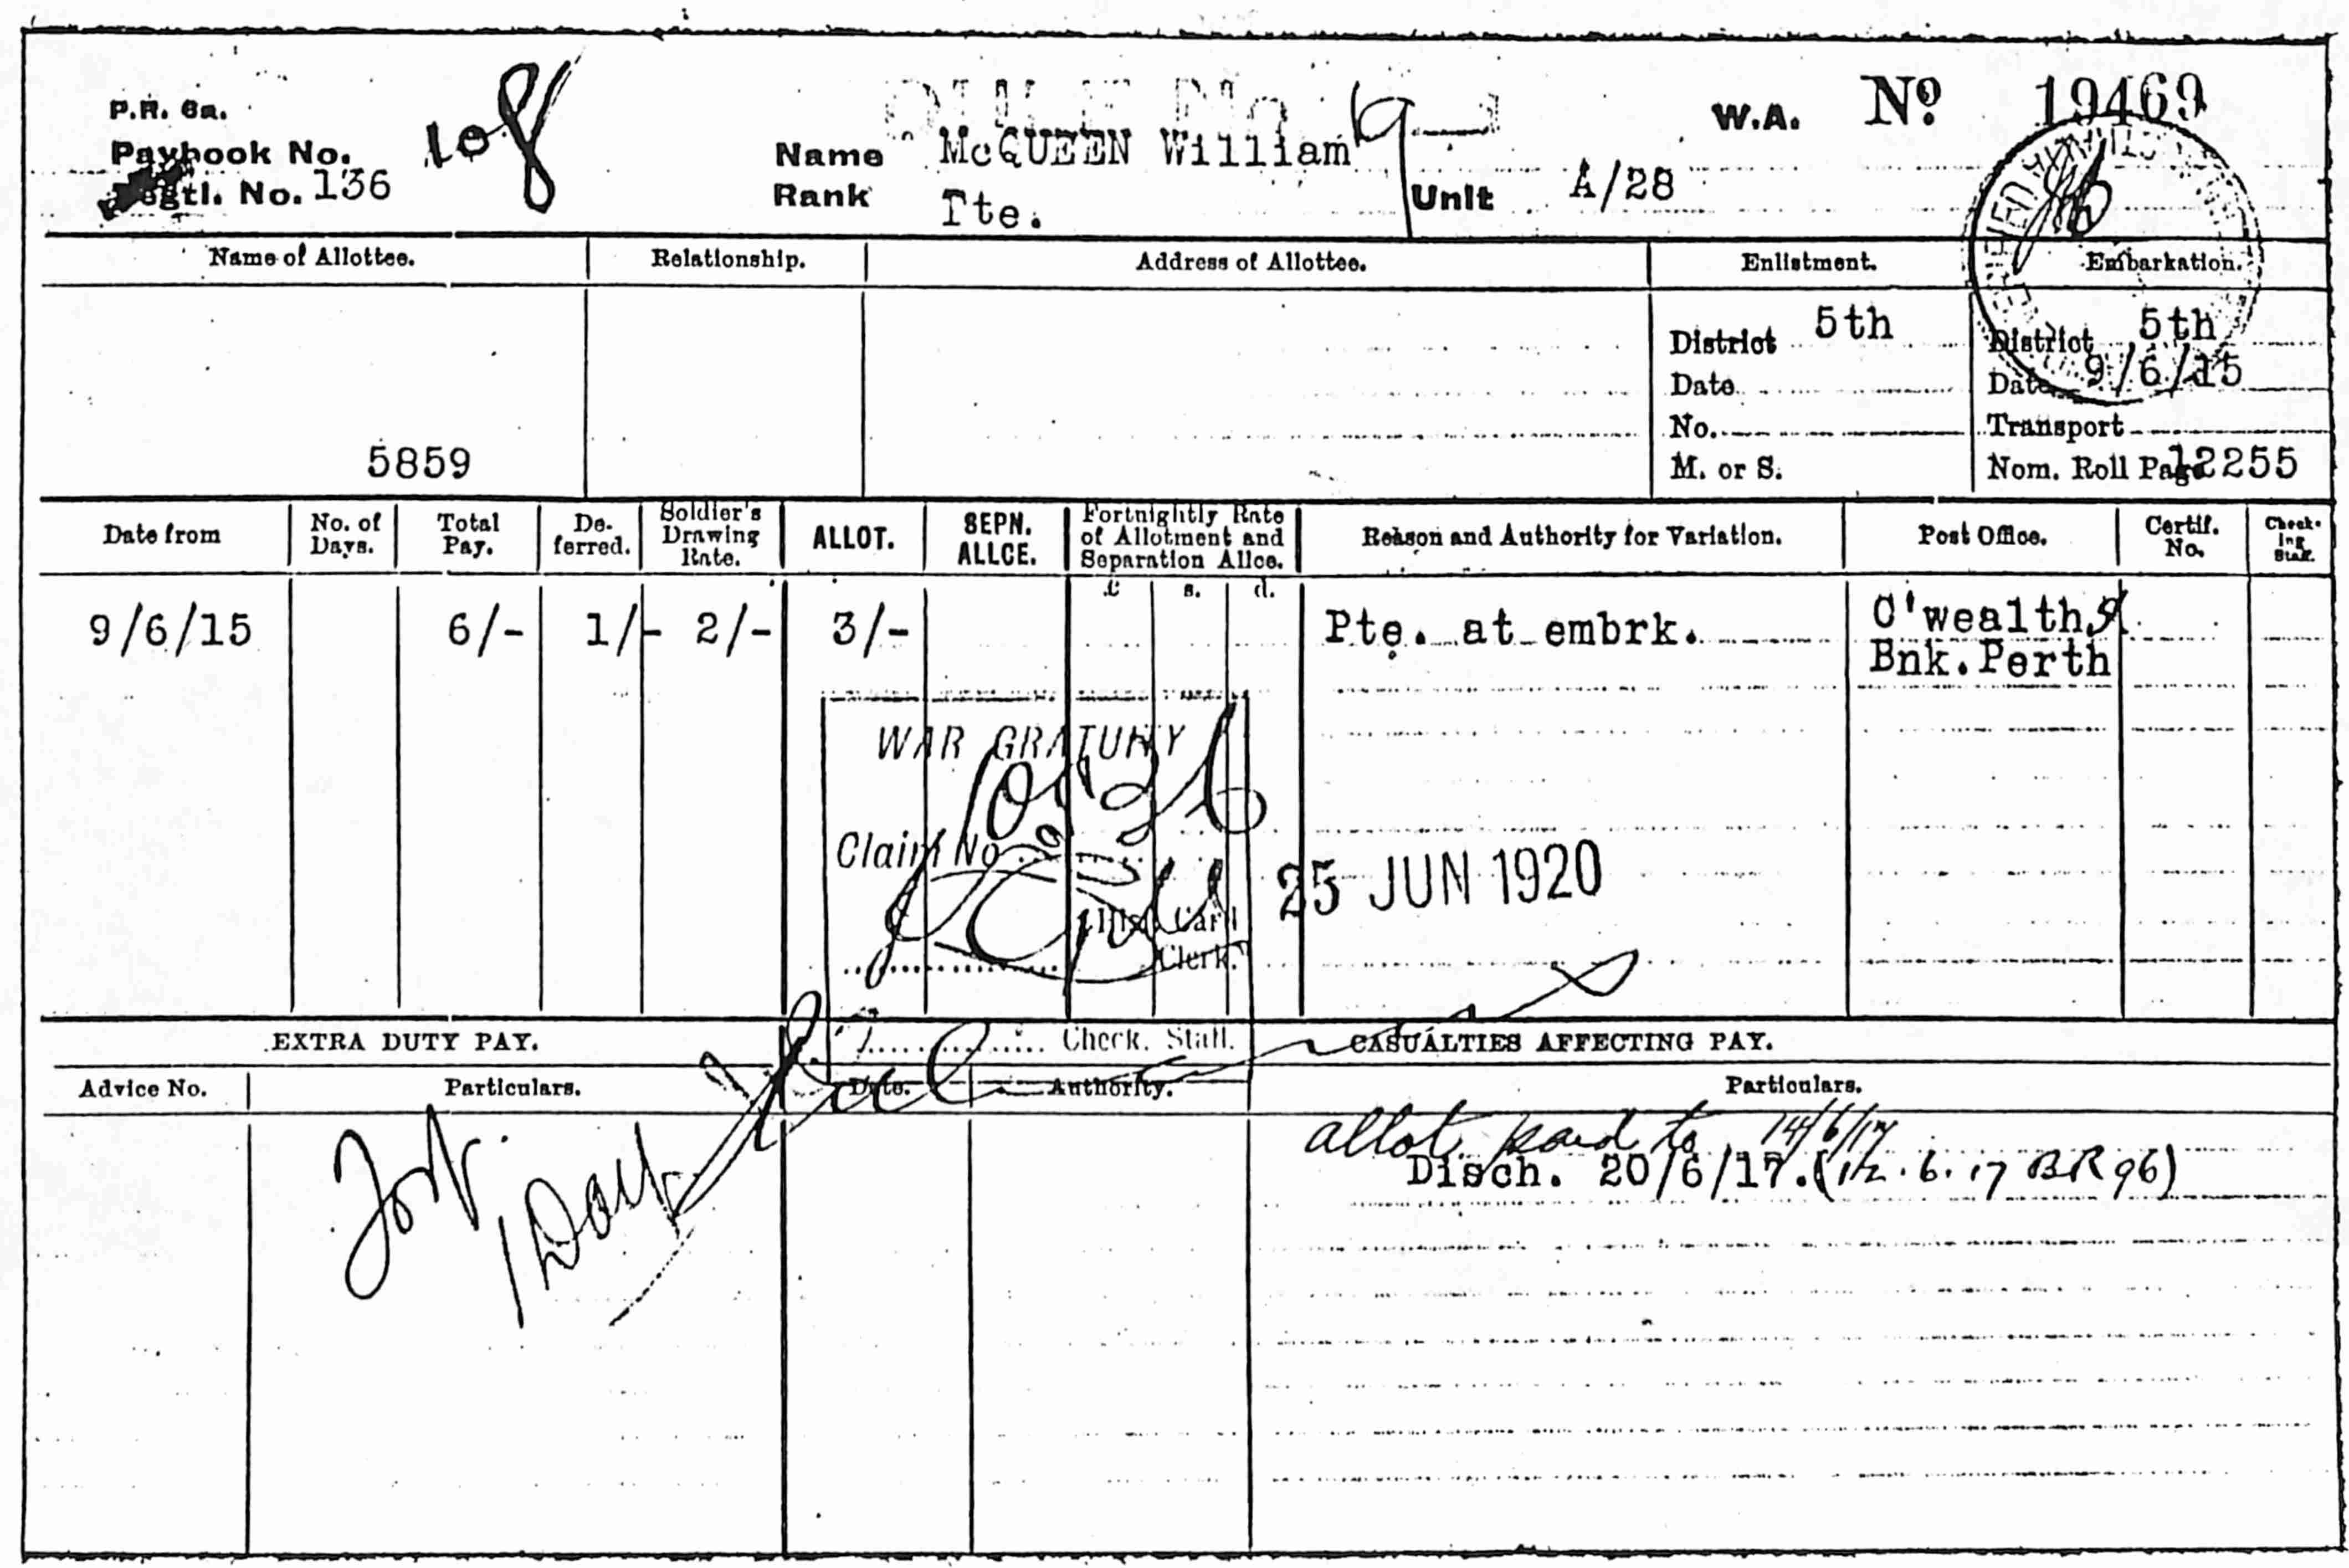 P.R. 6a.
W.A. No 19469
Paybook No.
108
Name McQUEEN William
Regtl. No. 136
Rank Pte.
Unit A/28
Name of Allottee. Relationship. Address of Allottee. Enlistment. Embarkation.
District 5th District 5th
Date Date 9/6/15
No. Transport
5859 M. or S. Nom. Roll Page 12255
Date from No. of Days. Total Pay. De-ferred. Soldier's Drawing Rate. ALLOT. SEPN. ALLCE. Fortnightly Rate of Allotment and Separation Allce. Reason and Authority for Variation. Post Office. Certif. No. Check-ing Staff.
£ s. d.
9/6/15 6/- 1/- 2/- 3/- Pte. at embrk. C'wealth
Bnk.Perth
WAR GRATUITY
Claim No
25 JUN 1920
Card
Clerk.
Check. Staff.
EXTRA DUTY PAY. CASUALTIES AFFECTING PAY.
Advice No. Particulars. Date. Authority. Particulars.
allot paid to 14/6/17
Disch. 20/6/17. (12.6.17 BR 96)
1 Day